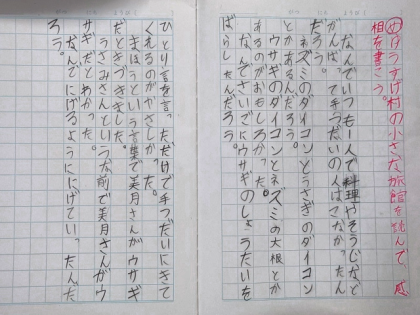 めあてゆうすげ村の小さな旅館を読んで、感
相を書こう。
なんでいつも一人で料理やそうじなど
がんばって手つだいの人はこなかったん
だろう。
ネズミのダイコンとうさぎのダイコン
とかあるんだろう。
ウサギのダイコンとネズミの大根とか
あるのがおもしろかった。
なんでさいごにウサギのしょうたいを
ばらしたんだろう。
ひとり言を言っただけで手つだいにきて
くれるのがやさしかった。
まほうという言葉で美月さんがウサギ
だときづきました。
うさみさんという名前で美月さんがウ
サギだとわかった。
なんでにげるようににげていったんだ
ろう。